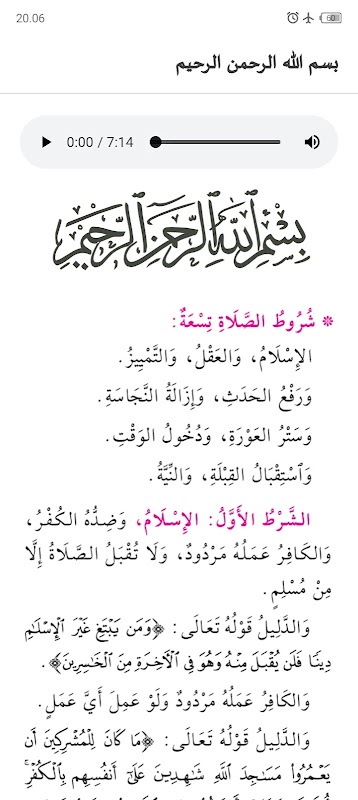 20.06
60
بسم الله الرحمن الرحيم
0:00 / 7:14
بِسْمِ ٱللَّهِ ٱلرَّحْمَٰنِ ٱلرَّحِيمِ
* شُرُوطُ الصَّلَاةِ تِسْعَةٌ:
الإِسْلَامُ، وَالعَقْلُ، وَالتَّمْيِيزُ.
وَرَفْعُ الحَدَثِ، وَإِزَالَةُ النَّجَاسَةِ.
وَسَتْرُ العَوْرَةِ، وَدُخُولُ الوَقْتِ.
وَٱسْتِقْبَالُ القِبْلَةِ، وَالنِّيَّةُ.
الشَّرْطُ الأَوَّلُ: الإِسْلَامُ، وَضِدُّهُ الكُفْرُ،
وَالكَافِرُ عَمَلُهُ مَرْدُودٌ، وَلَا تُقْبَلُ الصَّلَاةُ إِلَّا
مِنْ مُسْلِمٍ.
وَالدَّلِيلُ قَوْلُهُ تَعَالَى: ﴿وَمَن يَبْتَغِ غَيْرَ ٱلْإِسْلَٰمِ
دِينًا فَلَن يُقْبَلَ مِنْهُ وَهُوَ فِي ٱلْآخِرَةِ مِنَ ٱلْخَٰسِرِينَ﴾.
وَالكَافِرُ عَمَلُهُ مَرْدُودٌ وَلَوْ عَمِلَ أَيَّ عَمَلٍ.
وَالدَّلِيلُ قَوْلُهُ تَعَالَى: ﴿مَا كَانَ لِلْمُشْرِكِينَ أَن
يَعْمُرُوا۟ مَسَٰجِدَ ٱللَّهِ شَٰهِدِينَ عَلَىٰٓ أَنفُسِهِم بِٱلْكُفْرِ ۚ